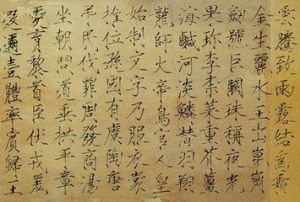 雲騰致雨露結為霜
金生麗水玉出崑崗
劒號巨闕珠稱夜光
果珍李柰菜重芥薑
海鹹河淡鱗潛羽翔
龍師火帝鳥官人皇
始制文字乃服衣裳
推位遜國有虞陶唐
弔民伐罪周發商湯
坐朝問道垂拱平章
愛育黎首臣伏戎羌
遐邇壹體率賓歸王